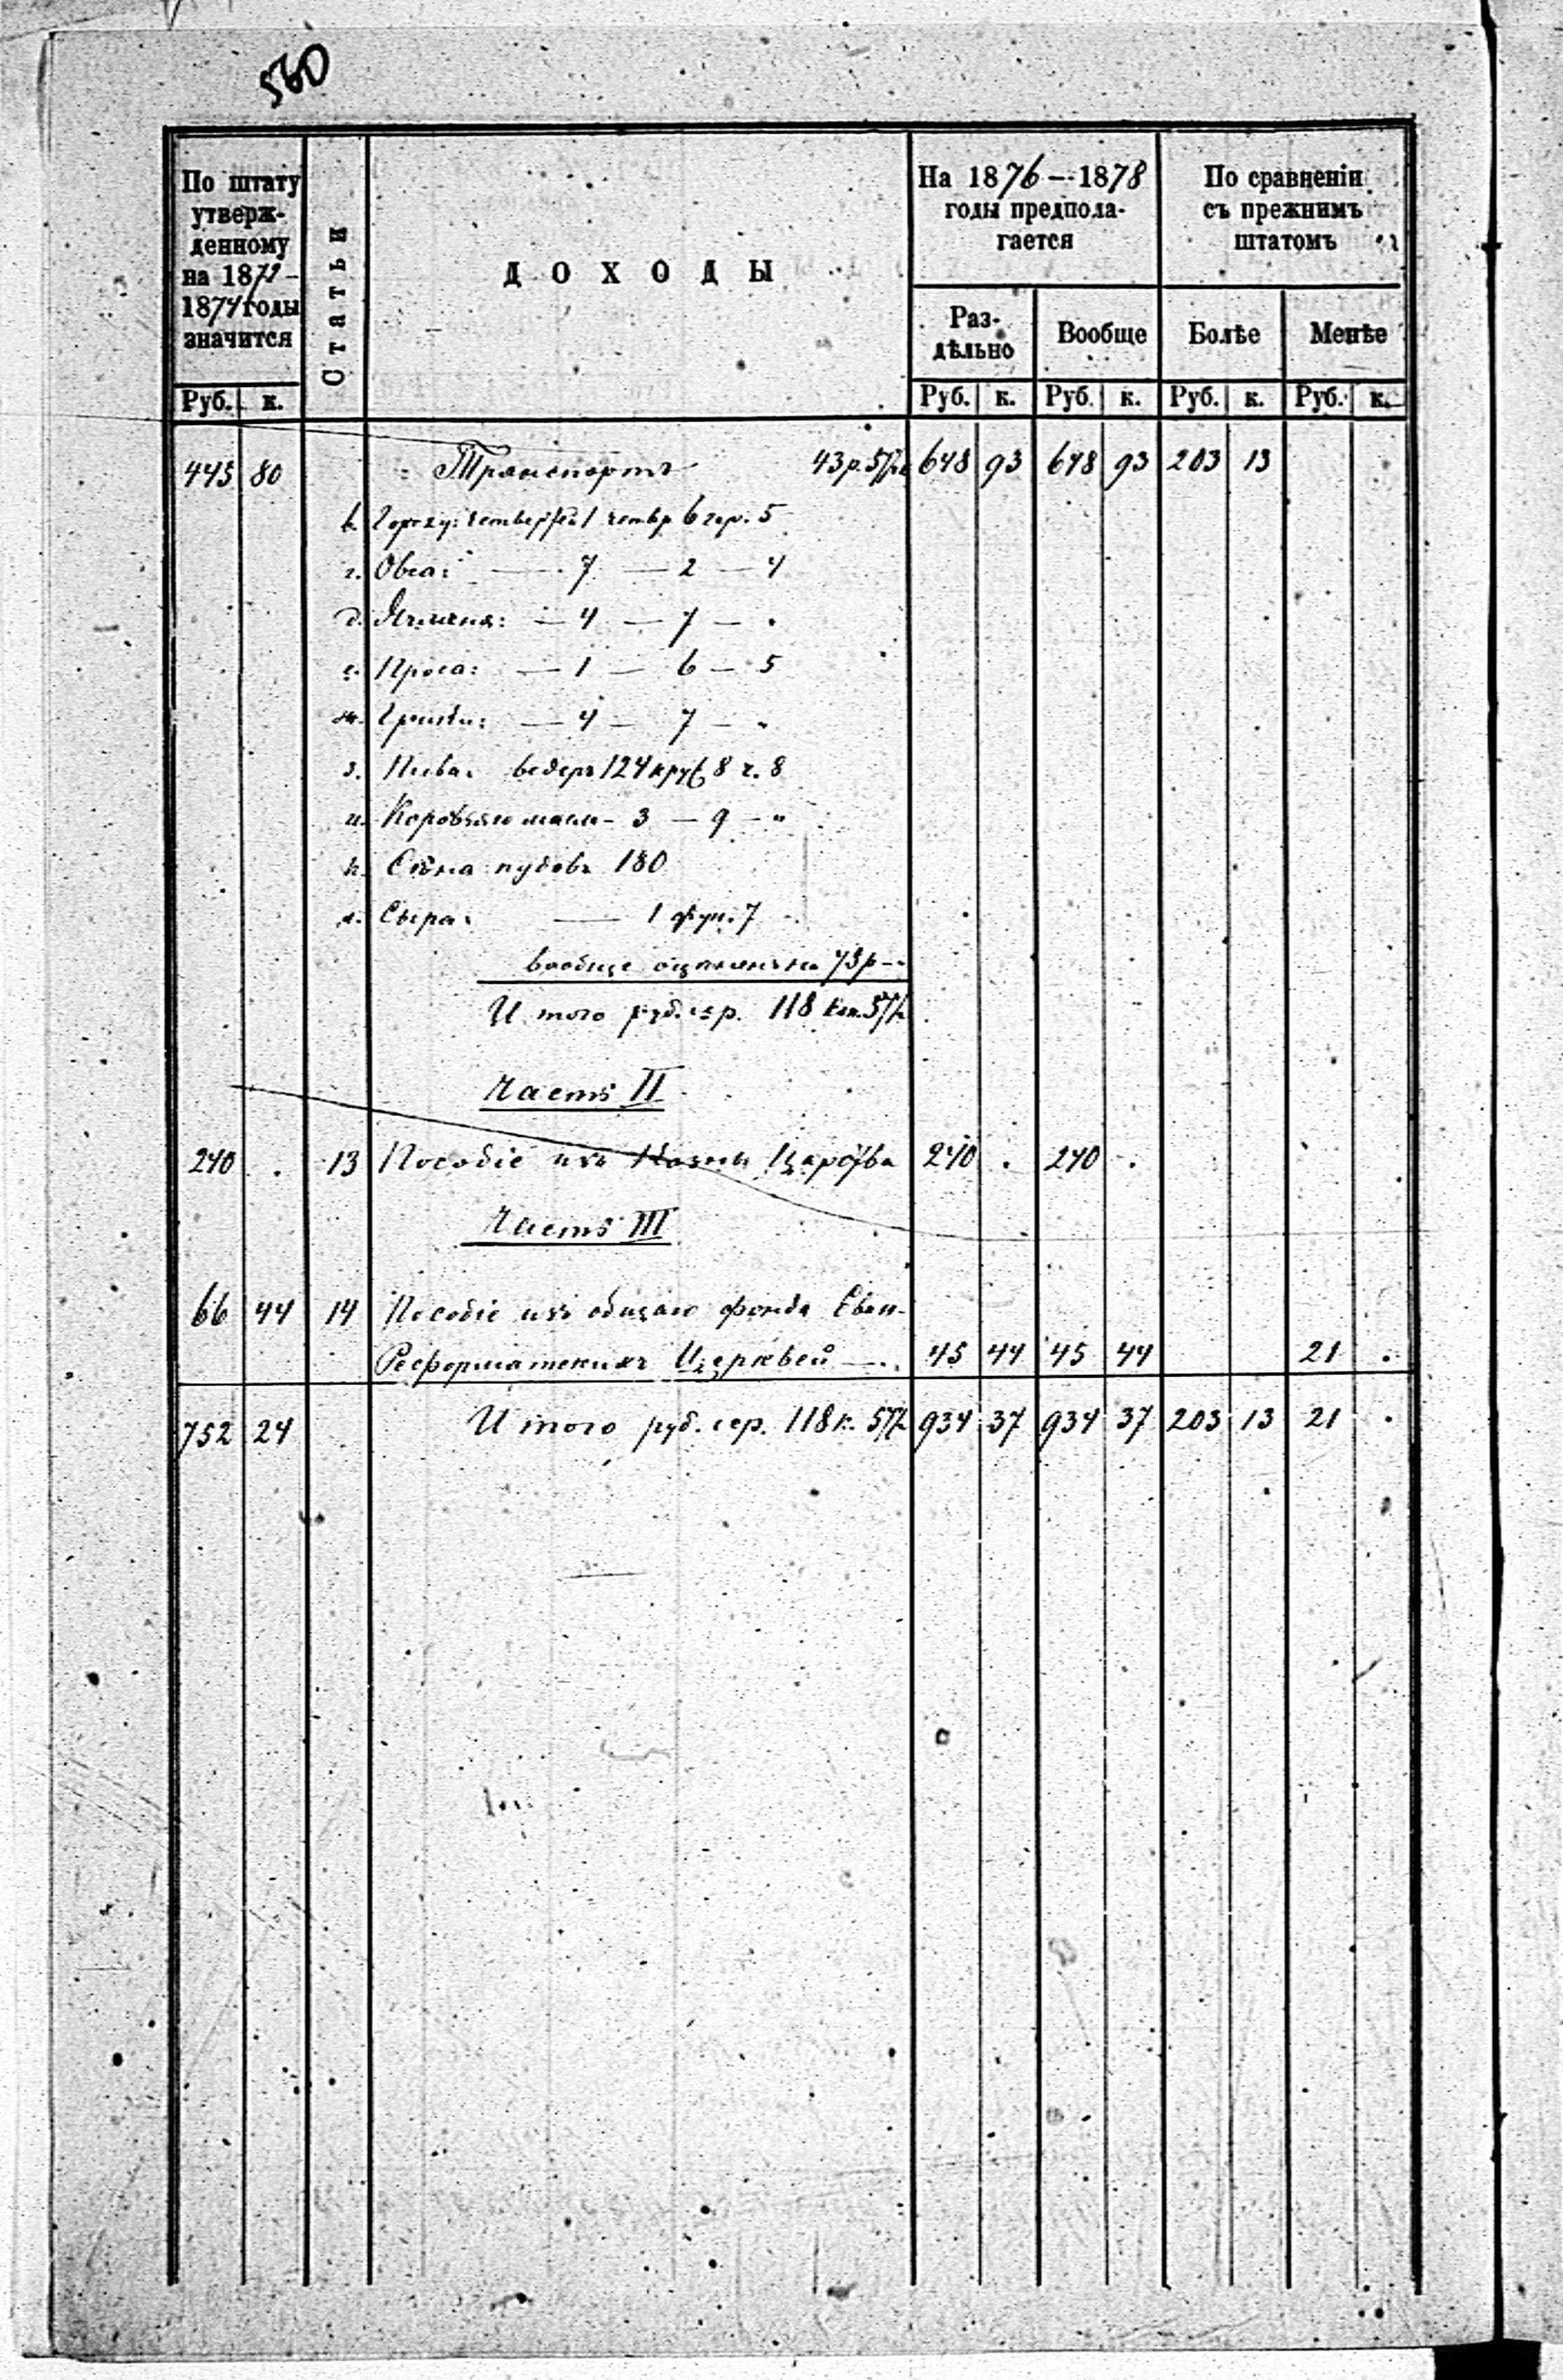 560
По штату утверж-денному на 1871-1874 годы значится
Статьи
ДОХОДЫ
На 1876-1878 годы предпола-гается
По сравненіи съ прежнимъ штатомъ
Раз-дѣльно
Вообще
Болѣе
Менѣе
Руб. к. Руб. к. Руб. к. Руб. к. Руб. к.
445 80 Транспортъ 43 р. 648 93 648 93 203 13
в. Гороху: 1 четвр. 6 гар. 5
г. Овса: — 7 — 2 — 4
д. Ячменя: — 4 — 7 — .
е. Проса: — 1 — 6 — 5
ж. Гречихи: — 4 — 7 — "
з. Пива: ведеръ 124 круж. 8 ч. 8
и. Коровьяго масла - 3 — 9 — "
к. Сѣна пудовъ 180
л. Сыра: — 1 фун. 7
вообще оцѣнены на
Итого руб. сер. 118 коп.
Часть II
240 . 13 Пособіе изъ Казны Царства 240 . 240 .
Часть III
66 44 14 Пособіе изъ общаго фонда Еван-
Реформатскихъ Церквей — . 45 44 45 44 21 .
752 24 Итого руб. сер. 118 к. 934 37 934 37 203 13 21 .